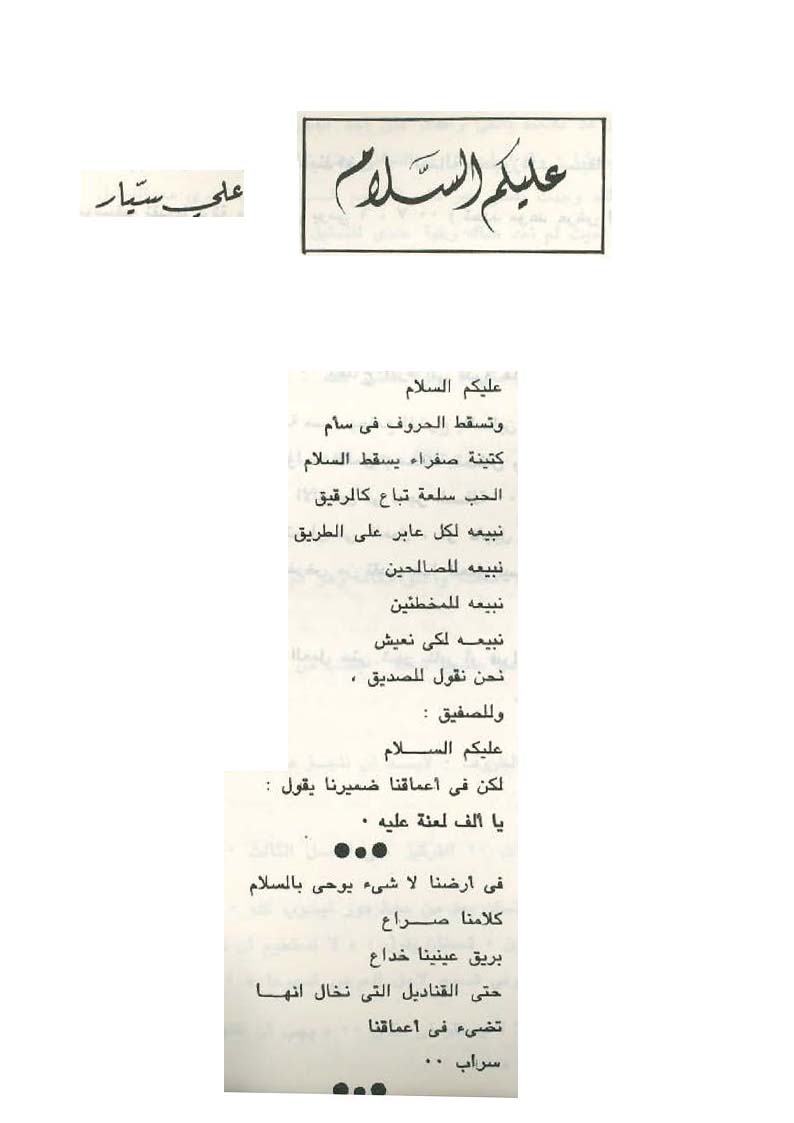 عليكم السَّلام
علي سيّار
عليكم السلام
وتسقط الحروف فى سأم
كتينة صفراء يسقط السلام
الحب سلعة تباع كالرقيق
نبيعه لكل عابر على الطريق
نبيعه للصالحين
نبيعه للمخطئين
نبيعـــه لكى نعيش
نحن نقول للصديق ،
وللصفيق :
عليكم الســـــلام
لكن فى أعماقنا ضميرنا يقول :
يا ألف لعنة عليه ٠
●●●
فى أرضنا لا شىء يوحى بالسلام
كلامنا صـــراع
بريق عينينا خداع
حتى القناديل التى نخال انهـــا
تضىء فى أعماقنا
سراب ٠٠
●●●